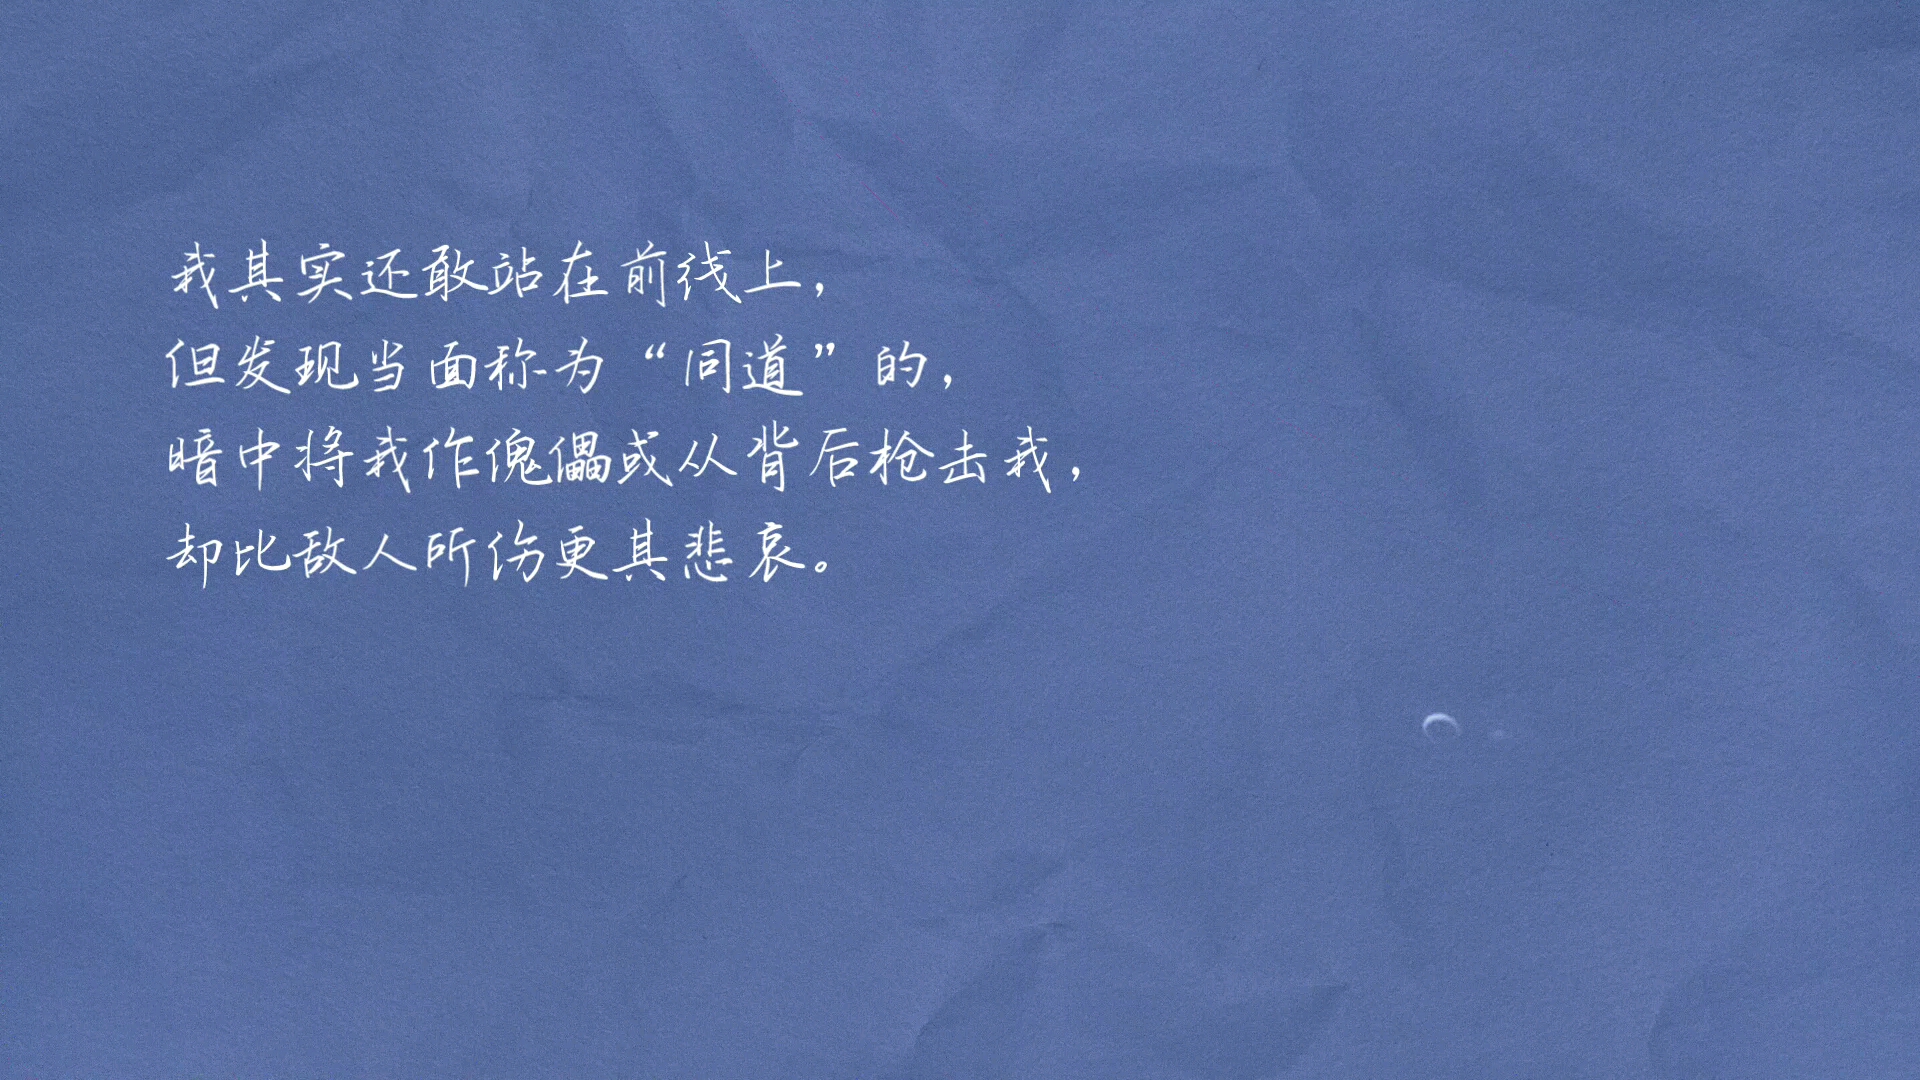 我其实还敢站在前线上，
但发现当面称为“同道”的，
暗中将我作傀儡或从背后枪击我，
却比敌人所伤更其悲哀。